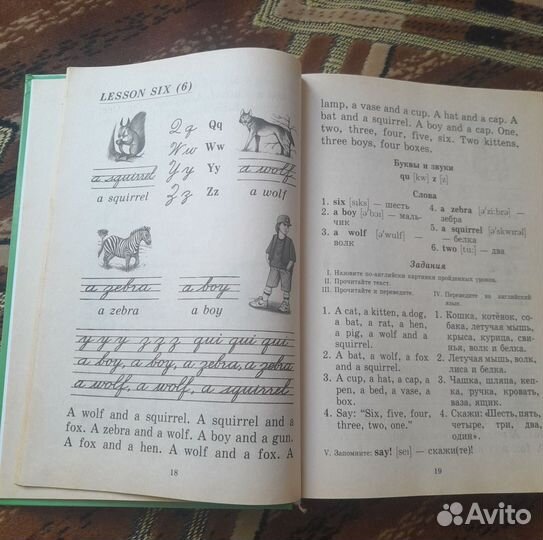 LESSON SIX (6)
Qq Qq
Ww Ww
Yy Yy
Zz Zz
a squirrel
a squirrel
a wolf
a wolf
a zebra
a zebra
a boy
a boy
y y y z z z qui qui qui
a boy, a boy, a zebra, a zebra
a wolf, a wolf, a squirrel
A wolf and a squirrel. A squirrel and a
fox. A zebra and a wolf. A boy and a gun.
A fox and a hen. A wolf and a fox. A
18
lamp, a vase and a cup. A hat and a cap. A
bat and a squirrel. A boy and a cap. One,
two, three, four, five, six. Two kittens,
three boys, four boxes.
Буквы и звуки
qu [kw] z [z]
Слова
1. six [sɪks] — шесть
2. a boy [ə'bɔɪ] — маль-
чик
3. a wolf [ə'wulf] —
волк
4. a zebra [ə'zi:brə] —
зебра
5. a squirrel [ə'skwɪrəl]
— белка
6. two [tu:] — два
Задания
I. Назовите по-английски картинки пройденных уроков.
II. Прочитайте текст.
III. Прочитайте и переведите.
1. A cat, a kitten, a dog,
a bat, a rat, a hen,
a pig, a wolf and a
squirrel.
2. A bat, a wolf, a fox
and a squirrel.
3. A cup, a hat, a cap, a
pen, a bed, a vase, a
box.
4. Say: "Six, five, four,
three, two, one."
IV. Переведите на английский
язык.
1. Кошка, котёнок, со-
бака, летучая мышь,
крыса, курица, сви-
нья, волк и белка.
2. Летучая мышь, волк,
лиса и белка.
3. Чашка, шляпа, кеп-
ка, ручка, кровать,
ваза, ящик.
4. Скажи: «Шесть, пять,
четыре, три, два,
один».
V. Запомните: say! [seɪ] — скажи(те)!
19
Avito